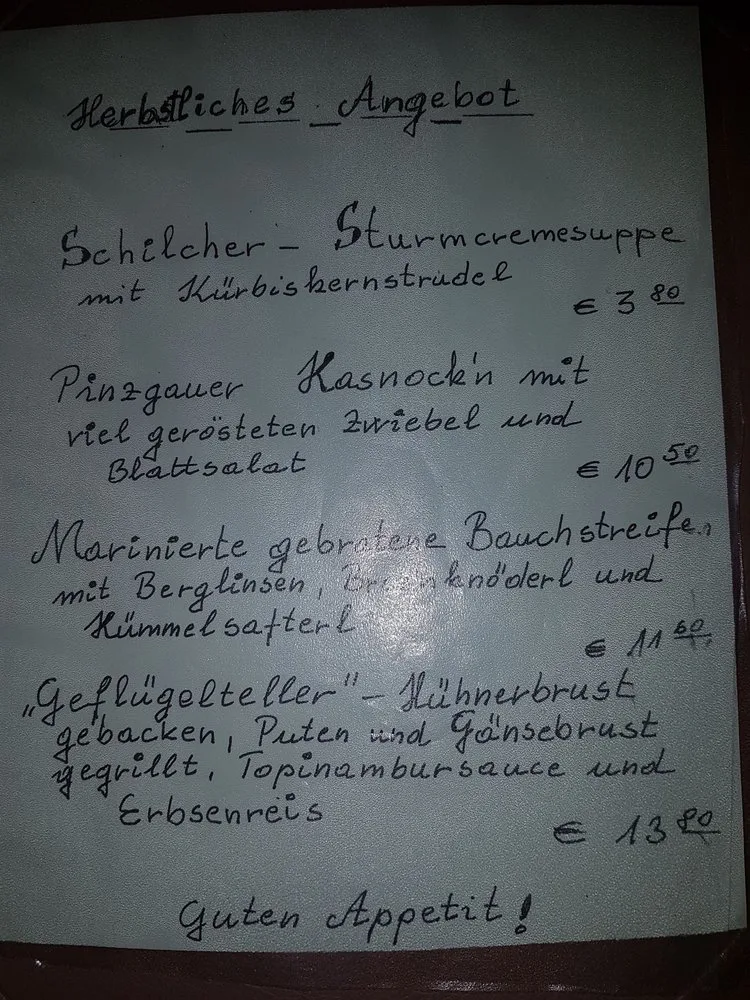 Herbstliches Angebot
Schilcher - Sturmcremesuppe
mit Kürbiskernstrudel
€ 3 80
Pinzgauer Kasnock'n mit
viel gerösteten Zwiebel und
Blattsalat
€ 10 50
Marinierte gebratene Bauchstreifen
mit Berglinsen, und
Kümmelsafterl
€ 11 60
„Geflügelteller" - Hühnerbrust
gebacken, Puten und Gänsebrust
gegrillt, Topinambursauce und
Erbsenreis
€ 13 80
Guten Appetit!